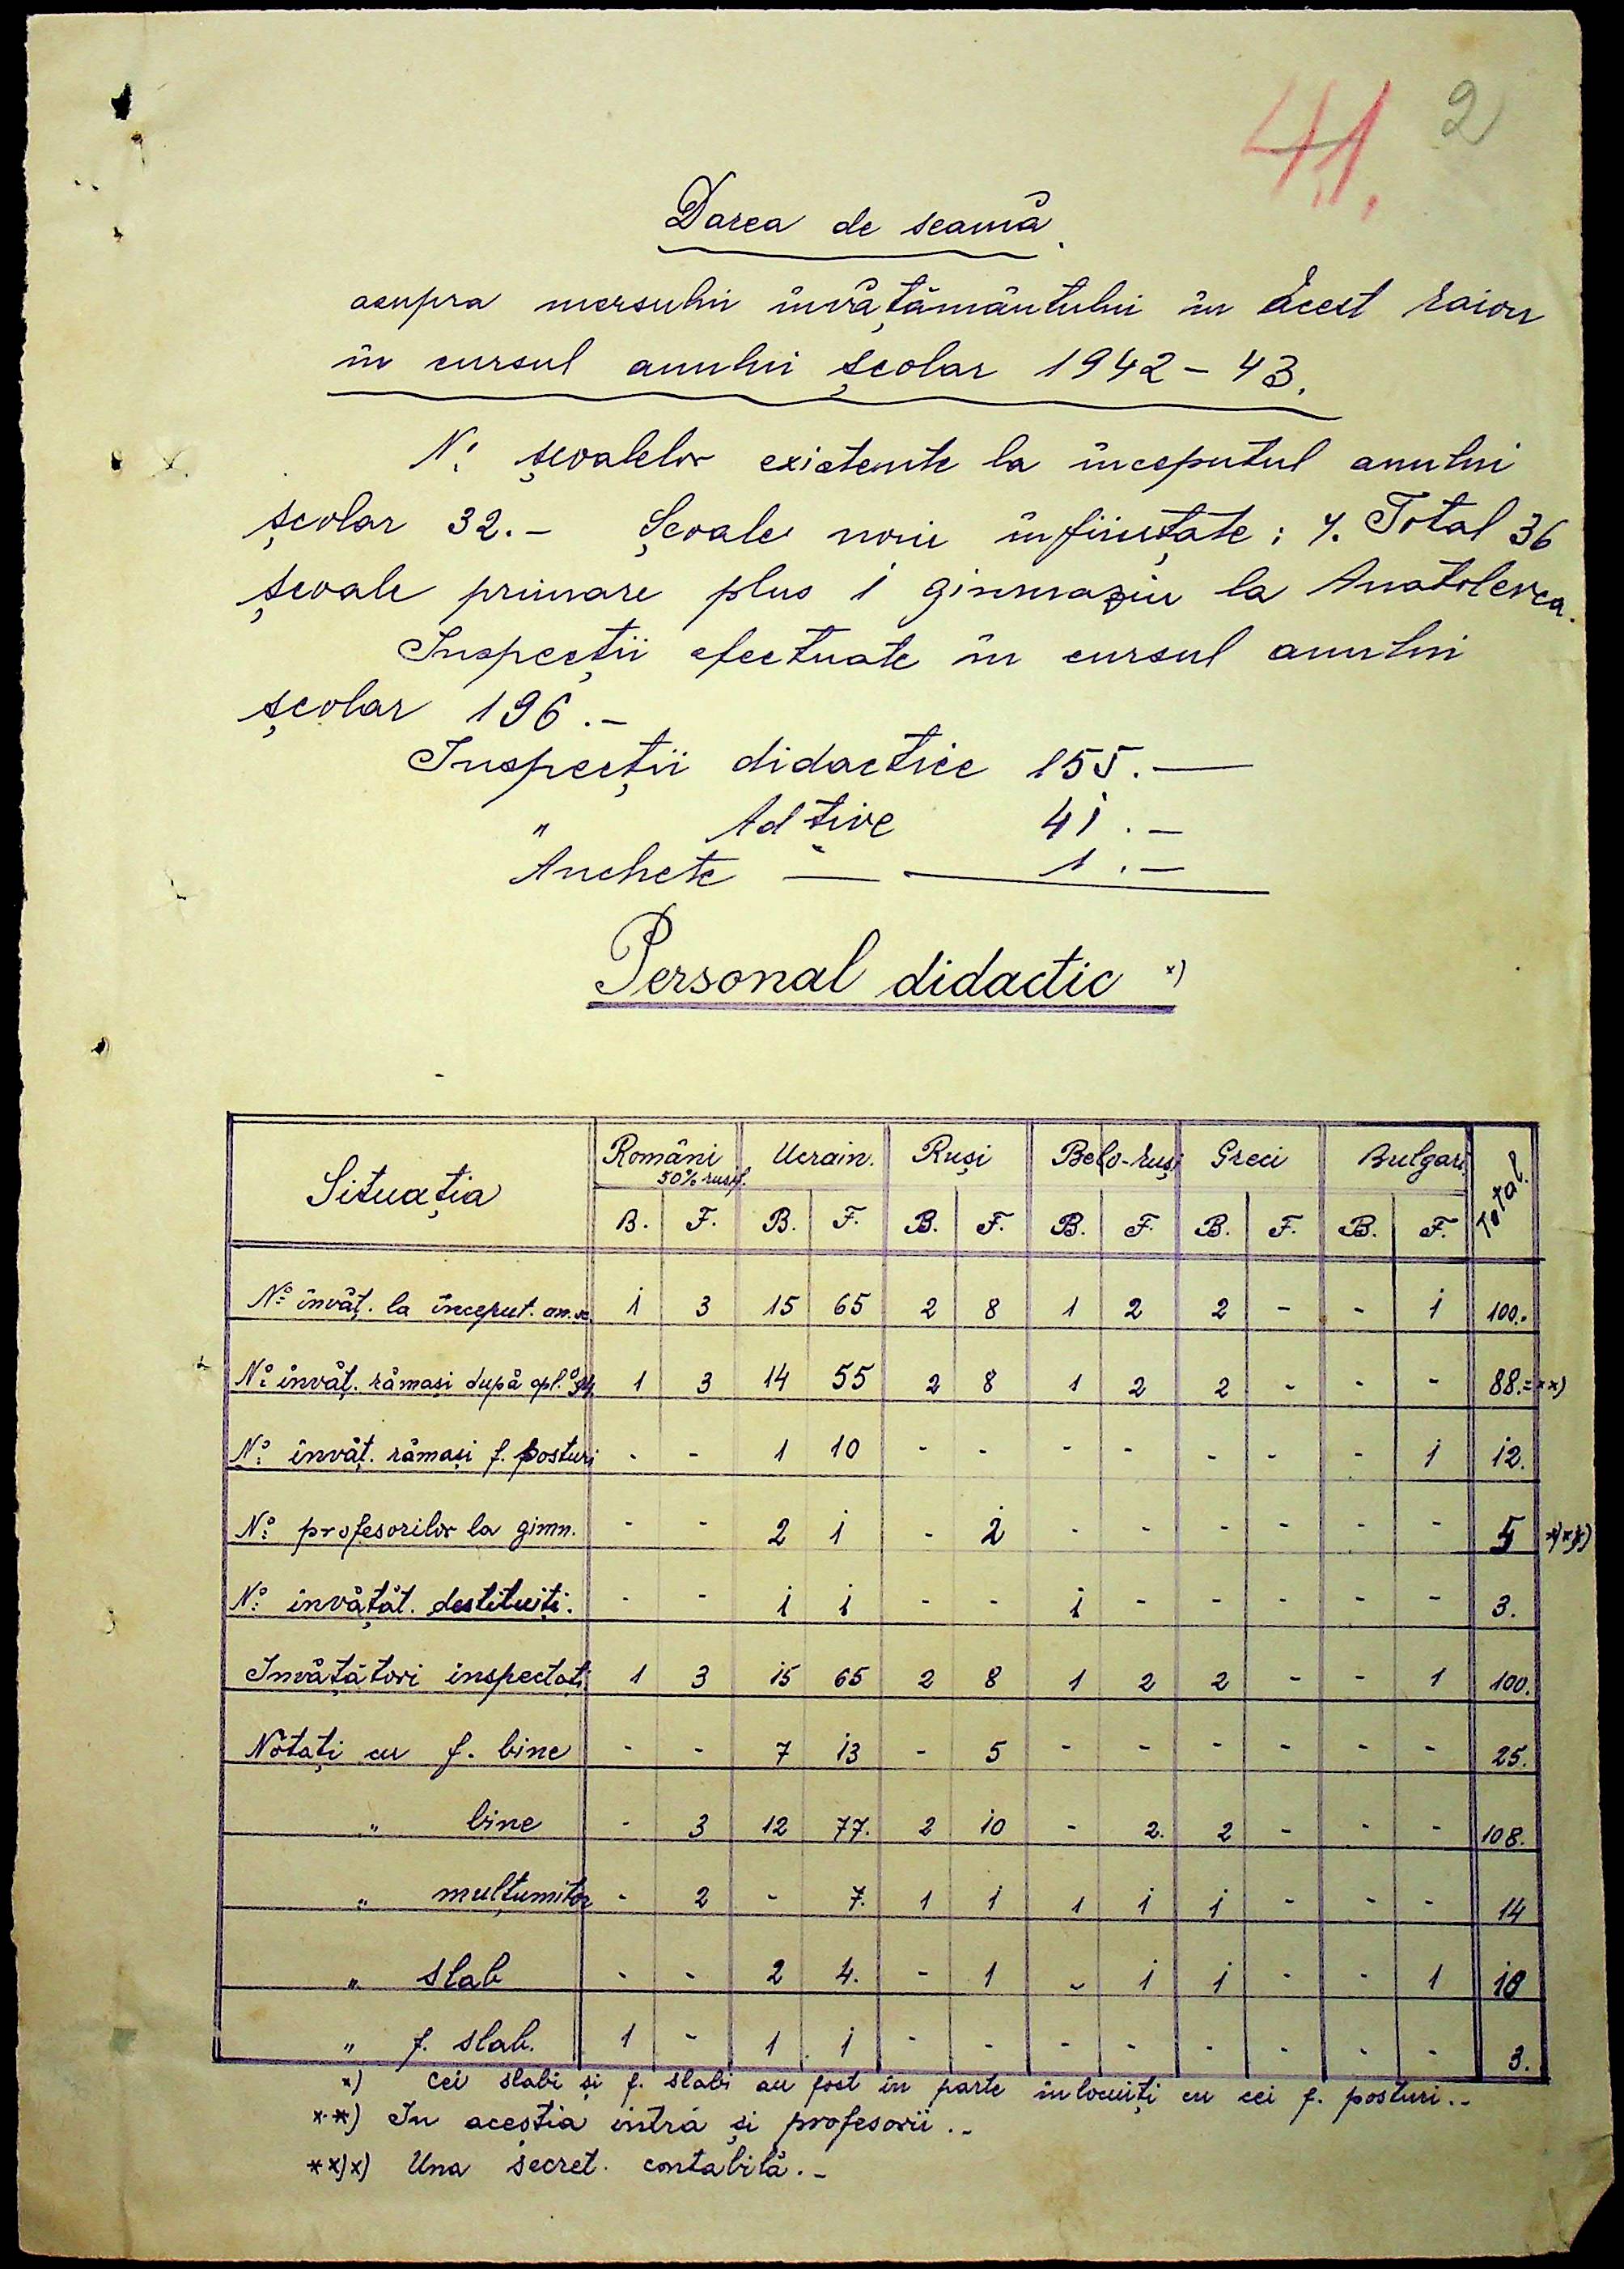 41. 2
Darea de seamă.
asupra mersului învățământului în acest raion
în cursul anului școlar 1942 – 43.
N: școalelor existente la începutul anului
școlar 32.– Școale noui înființate: 4. Total 36
școale primare plus 1 gimnaziu la Anatolevca.
Inspecții efectuate în cursul anului
școlar 196.–
Inspecții didactice 155.—
" Ad-tive 41.–
Anchete — — 1.–
Personal didactic x)
Situația | Români 50% rusif. | Ucrain. | Ruși | Belo-ruși | Greci | Bulgari | Total.
B. | F. | B. | F. | B. | F. | B. | F. | B. | F. | B. | F.
No: învăț. la început. an. sc. | 1 | 3 | 15 | 65 | 2 | 8 | 1 | 2 | 2 | - | - | 1 | 100.
No: învăț. rămași după apl. | 1 | 3 | 14 | 55 | 2 | 8 | 1 | 2 | 2 | - | - | - | 88.= **)
No: învăț. rămași f. posturi | - | - | 1 | 10 | - | - | - | - | - | - | - | 1 | 12.
No: profesorilor la gimn. | - | - | 2 | 1 | - | 2 | - | - | - | - | - | - | 5 *)*)*)
No: învățăt. destituiți. | - | - | 1 | 1 | - | - | 1 | - | - | - | - | - | 3.
Învățători inspectați. | 1 | 3 | 15 | 65 | 2 | 8 | 1 | 2 | 2 | - | - | 1 | 100.
Notați cu f. bine | - | - | 7 | 13 | - | 5 | - | - | - | - | - | - | 25.
" bine | - | 3 | 12 | 77. | 2 | 10 | - | 2. | 2 | - | - | - | 108.
" mulțumitor | - | 2 | - | 7. | 1 | 1 | 1 | 1 | 1 | - | - | - | 14
" slab | - | - | 2 | 4. | - | 1 | - | 1 | 1 | - | - | 1 | 10
" f. slab. | 1 | - | 1 | 1 | - | - | - | - | - | - | - | - | 3.
x) Cei slabi și f. slabi au fost în parte înlocuiți cu cei f. posturi..-
**) In aceștia intră și profesorii..-
*x)x) Una secret. contabilă.-